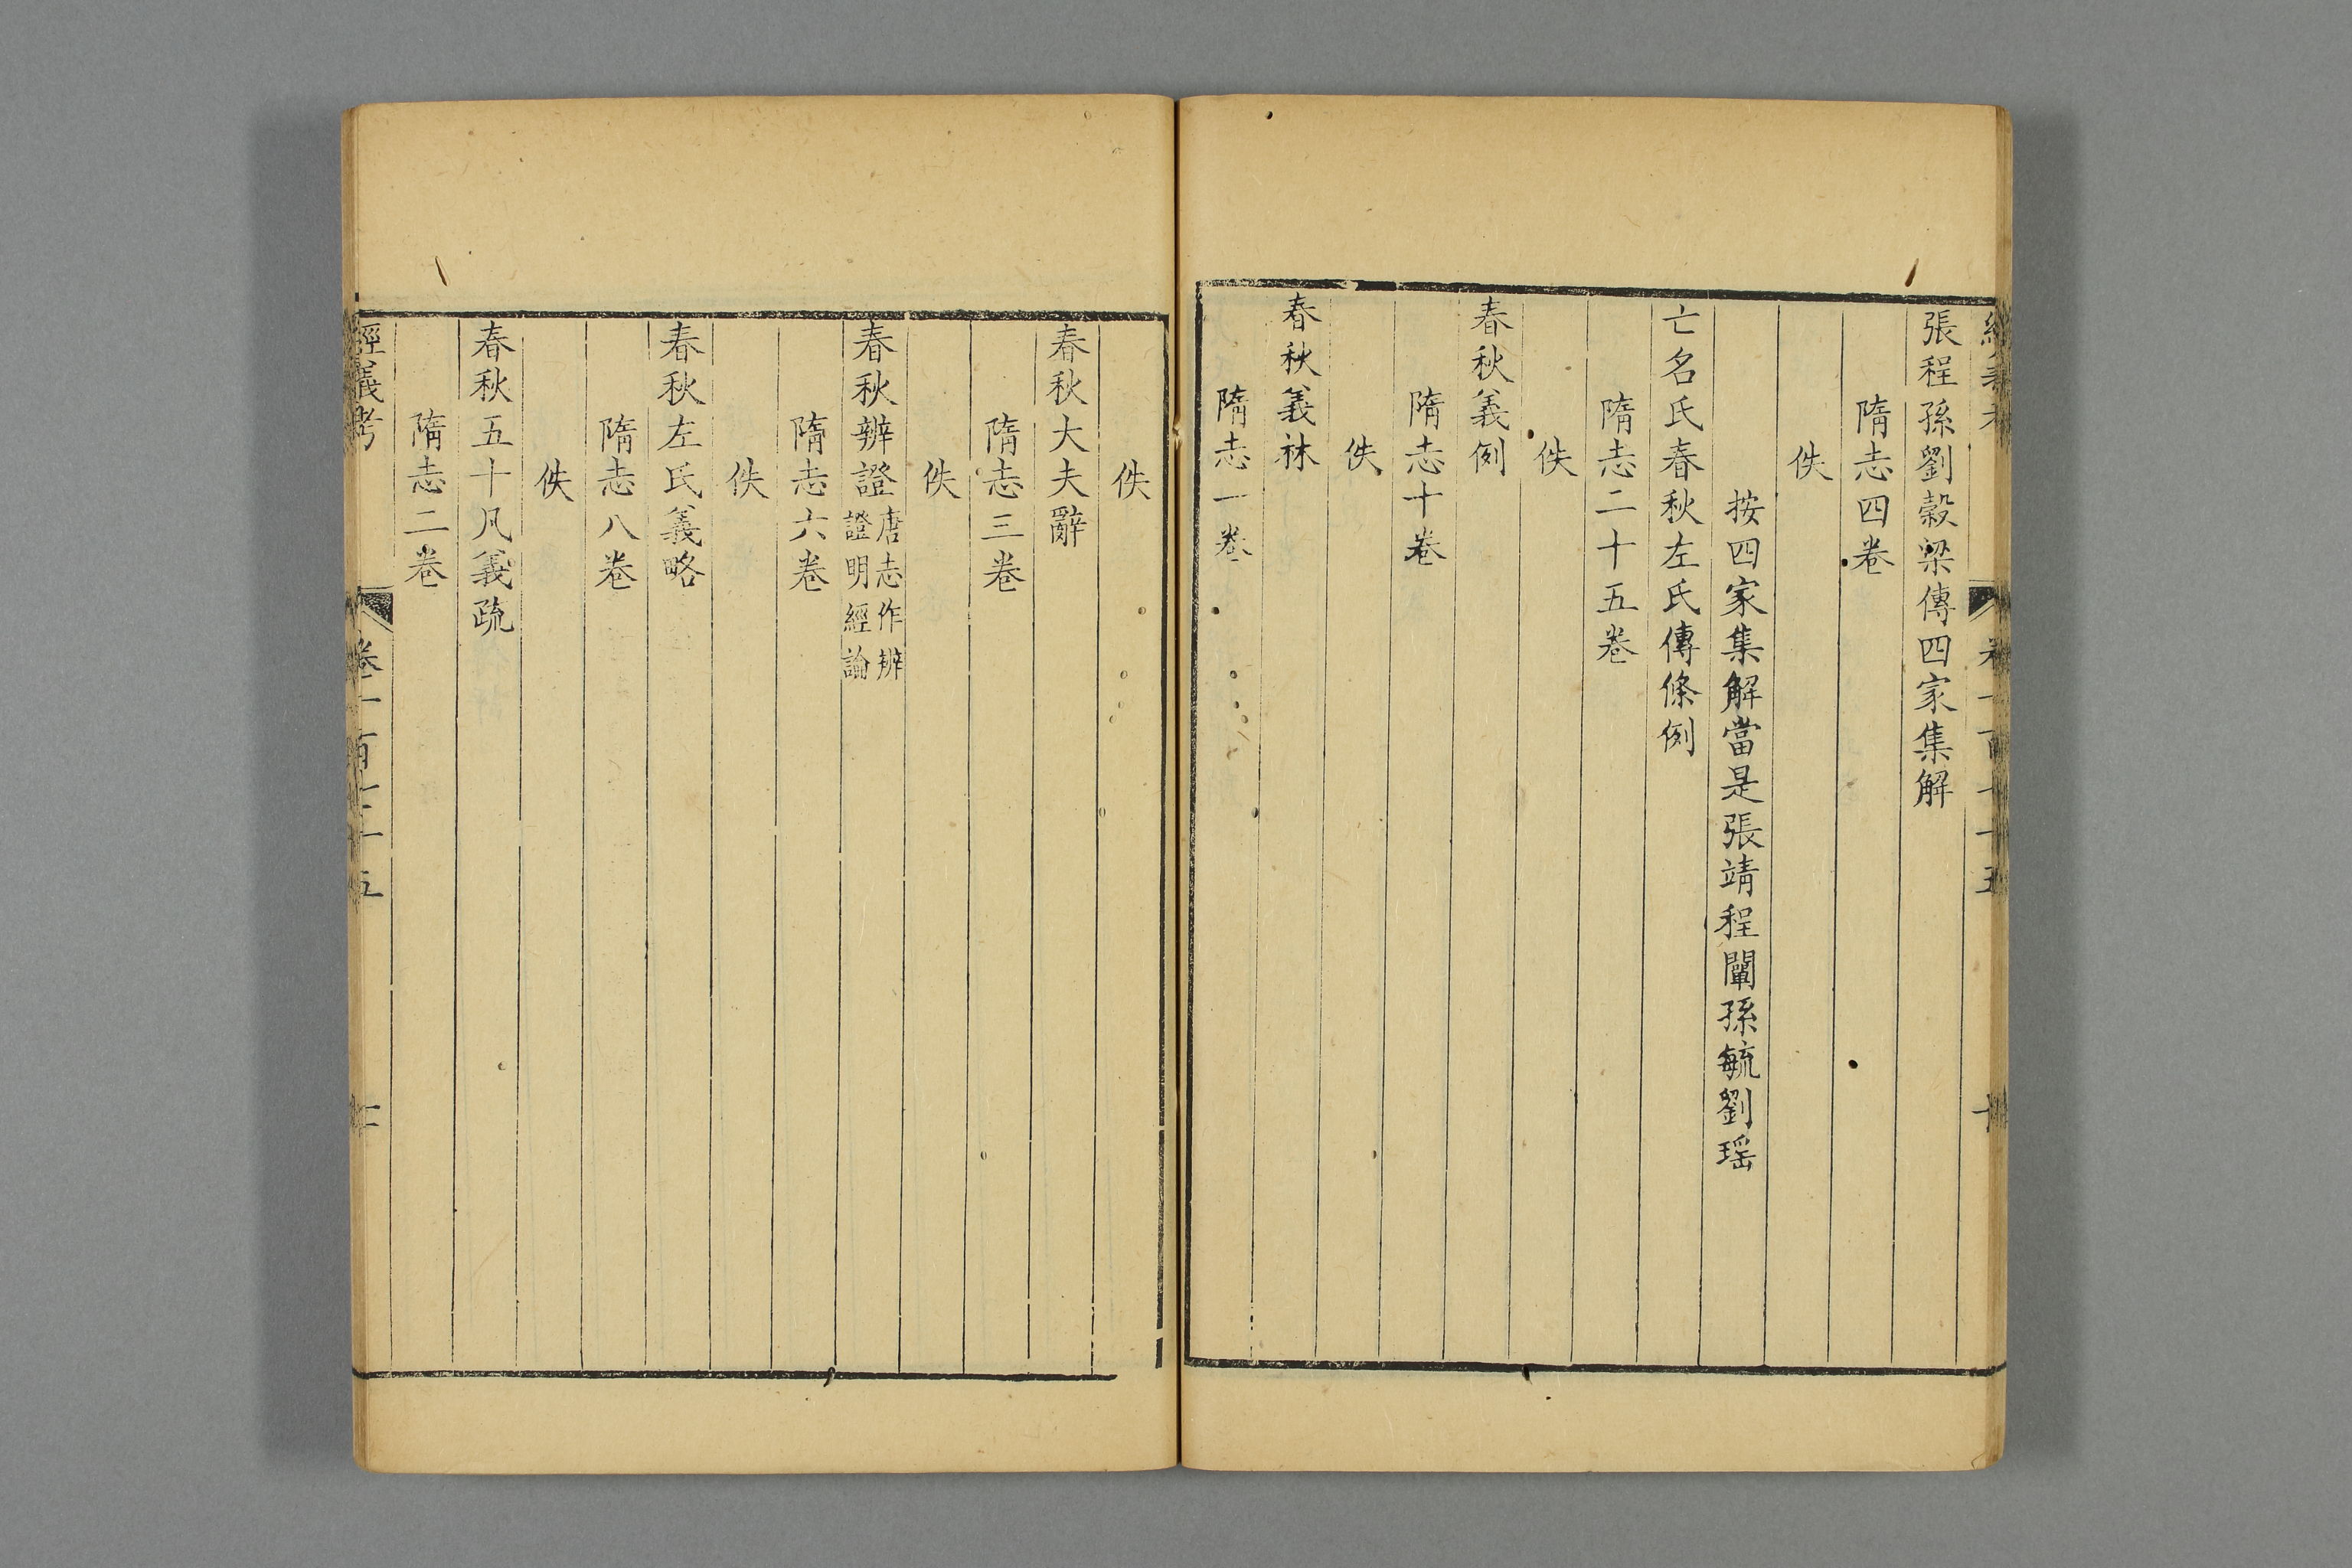 張程孫劉穀梁傳四家集解
隋志四卷
佚
按四家集解當是張靖程闡孫毓劉瑶
亡名氏春秋左氏傳條例
隋志二十五卷
佚
春秋義例
隋志十卷
佚
春秋義林
隋志一卷
佚
春秋大夫辭
隋志三卷
佚
春秋辨證唐志作辨
證明經論
隋志六卷
佚
春秋左氏義略
隋志八卷
佚
春秋五十凡義疏
隋志二卷
經義考 卷一百七十五